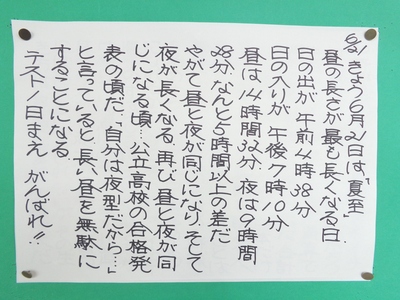 6/21 きょう6月21日は、「夏至」
昼の長さが最も長くなる日.
日の出が 午前4時38分
日の入りが 午後7時10分
昼は14時間32分. 夜は9時間
28分. なんと5時間以上の差だ
やがて昼と夜が同じになり、そして
夜が長くなる. 再び昼と夜が同
じになる頃…公立高校の合格発
表の頃だ.「自分は夜型だから…」
と言っていると、長い昼を無駄に
することになる.
テスト1日まえ がんばれ!!